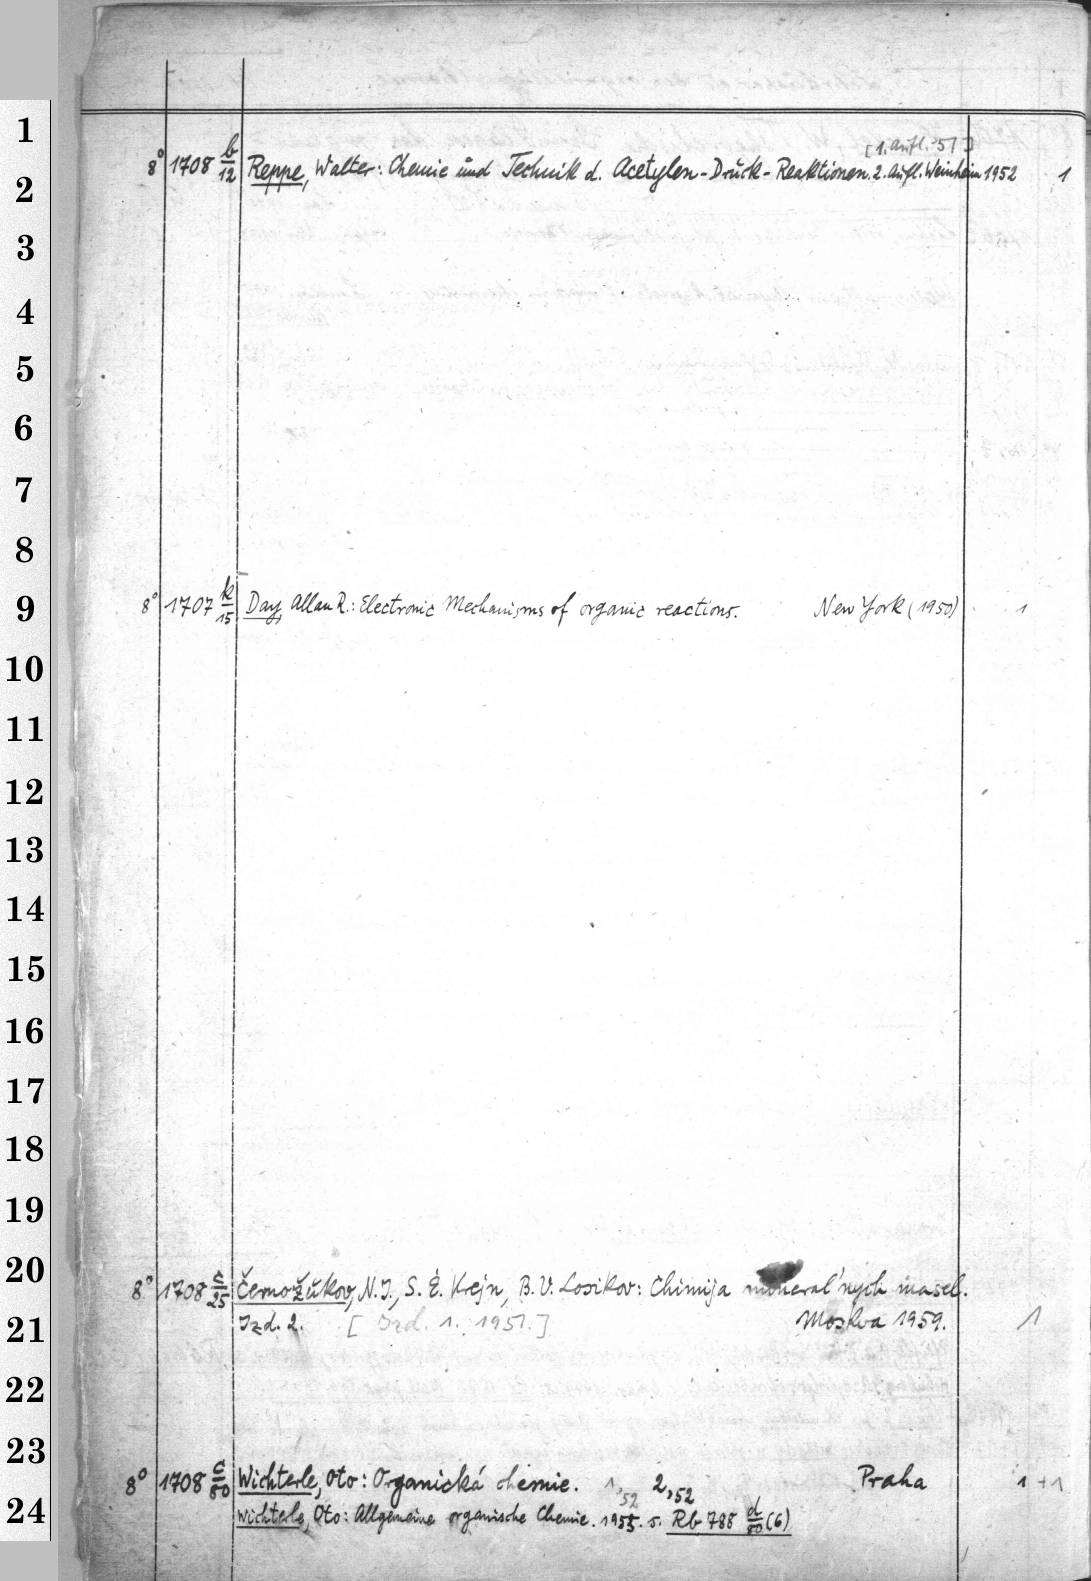 1
2
3
4
5
6
7
8
9
10
11
12
13
14
15
16
17
18
19
20
21
22
23
24
[1. Aufl. '51]
8° 1708 b/12 Reppe, Walter: Chemie und Technik d. Acetylen-Druck-Reaktionen. 2. Aufl. Weinheim 1952 1
8° 1707 k/15 Day, Allan R.: Electronic Mechanisms of organic reactions. New York (1950) 1
8° 1708 c/25 Černožukov, N. I., S. É. Krejn, B. V. Losikov: Chimija mineral'nych masel.
Izd. 2. [Izd. 1. 1951.] Moskva 1959. 1
8° 1708 c/80 Wichterle, Oto: Organická chemie. 1,52 2,52 Praha 1+1
Wichterle, Oto: Allgemeine organische Chemie. 1955. s. Rb 788 d/80 (6)